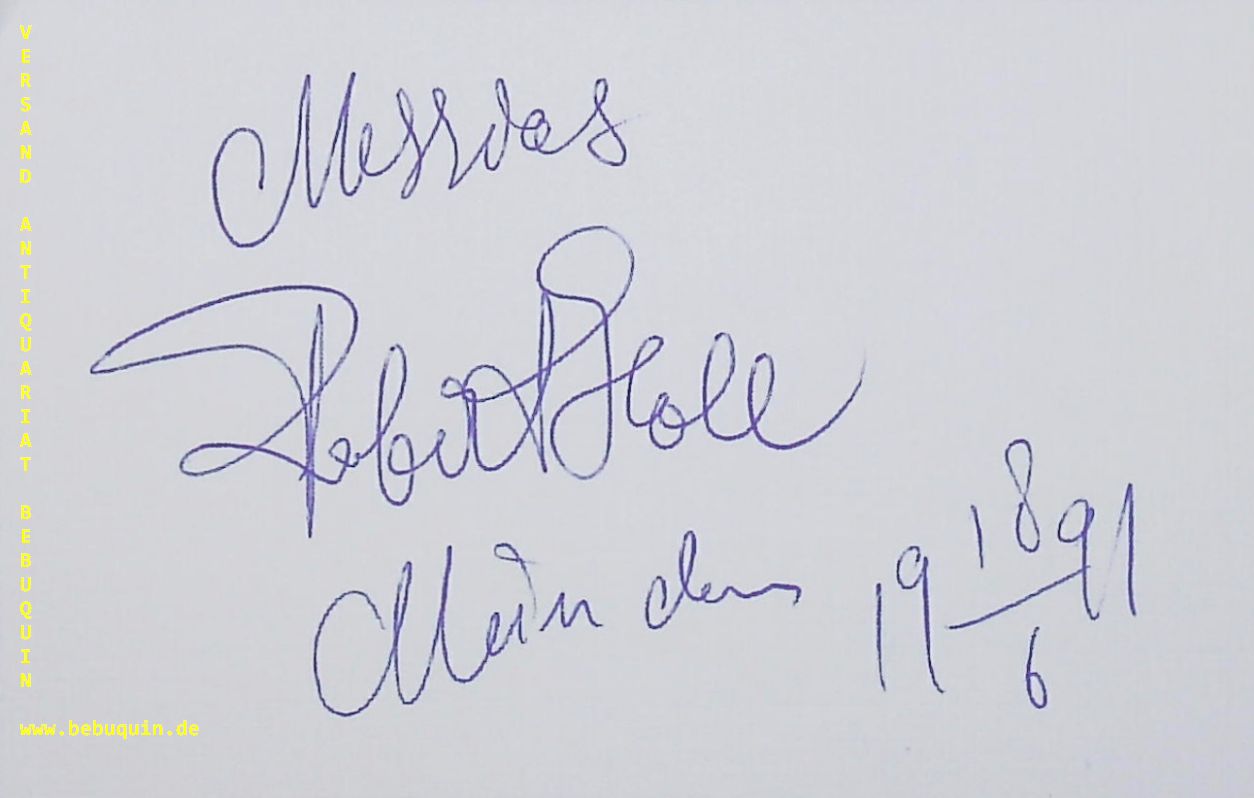 VERSAND ANTIQUARIAT BEBUQUIN
www.bebuquin.de
Messias
Robert Holl
19 18/6 91